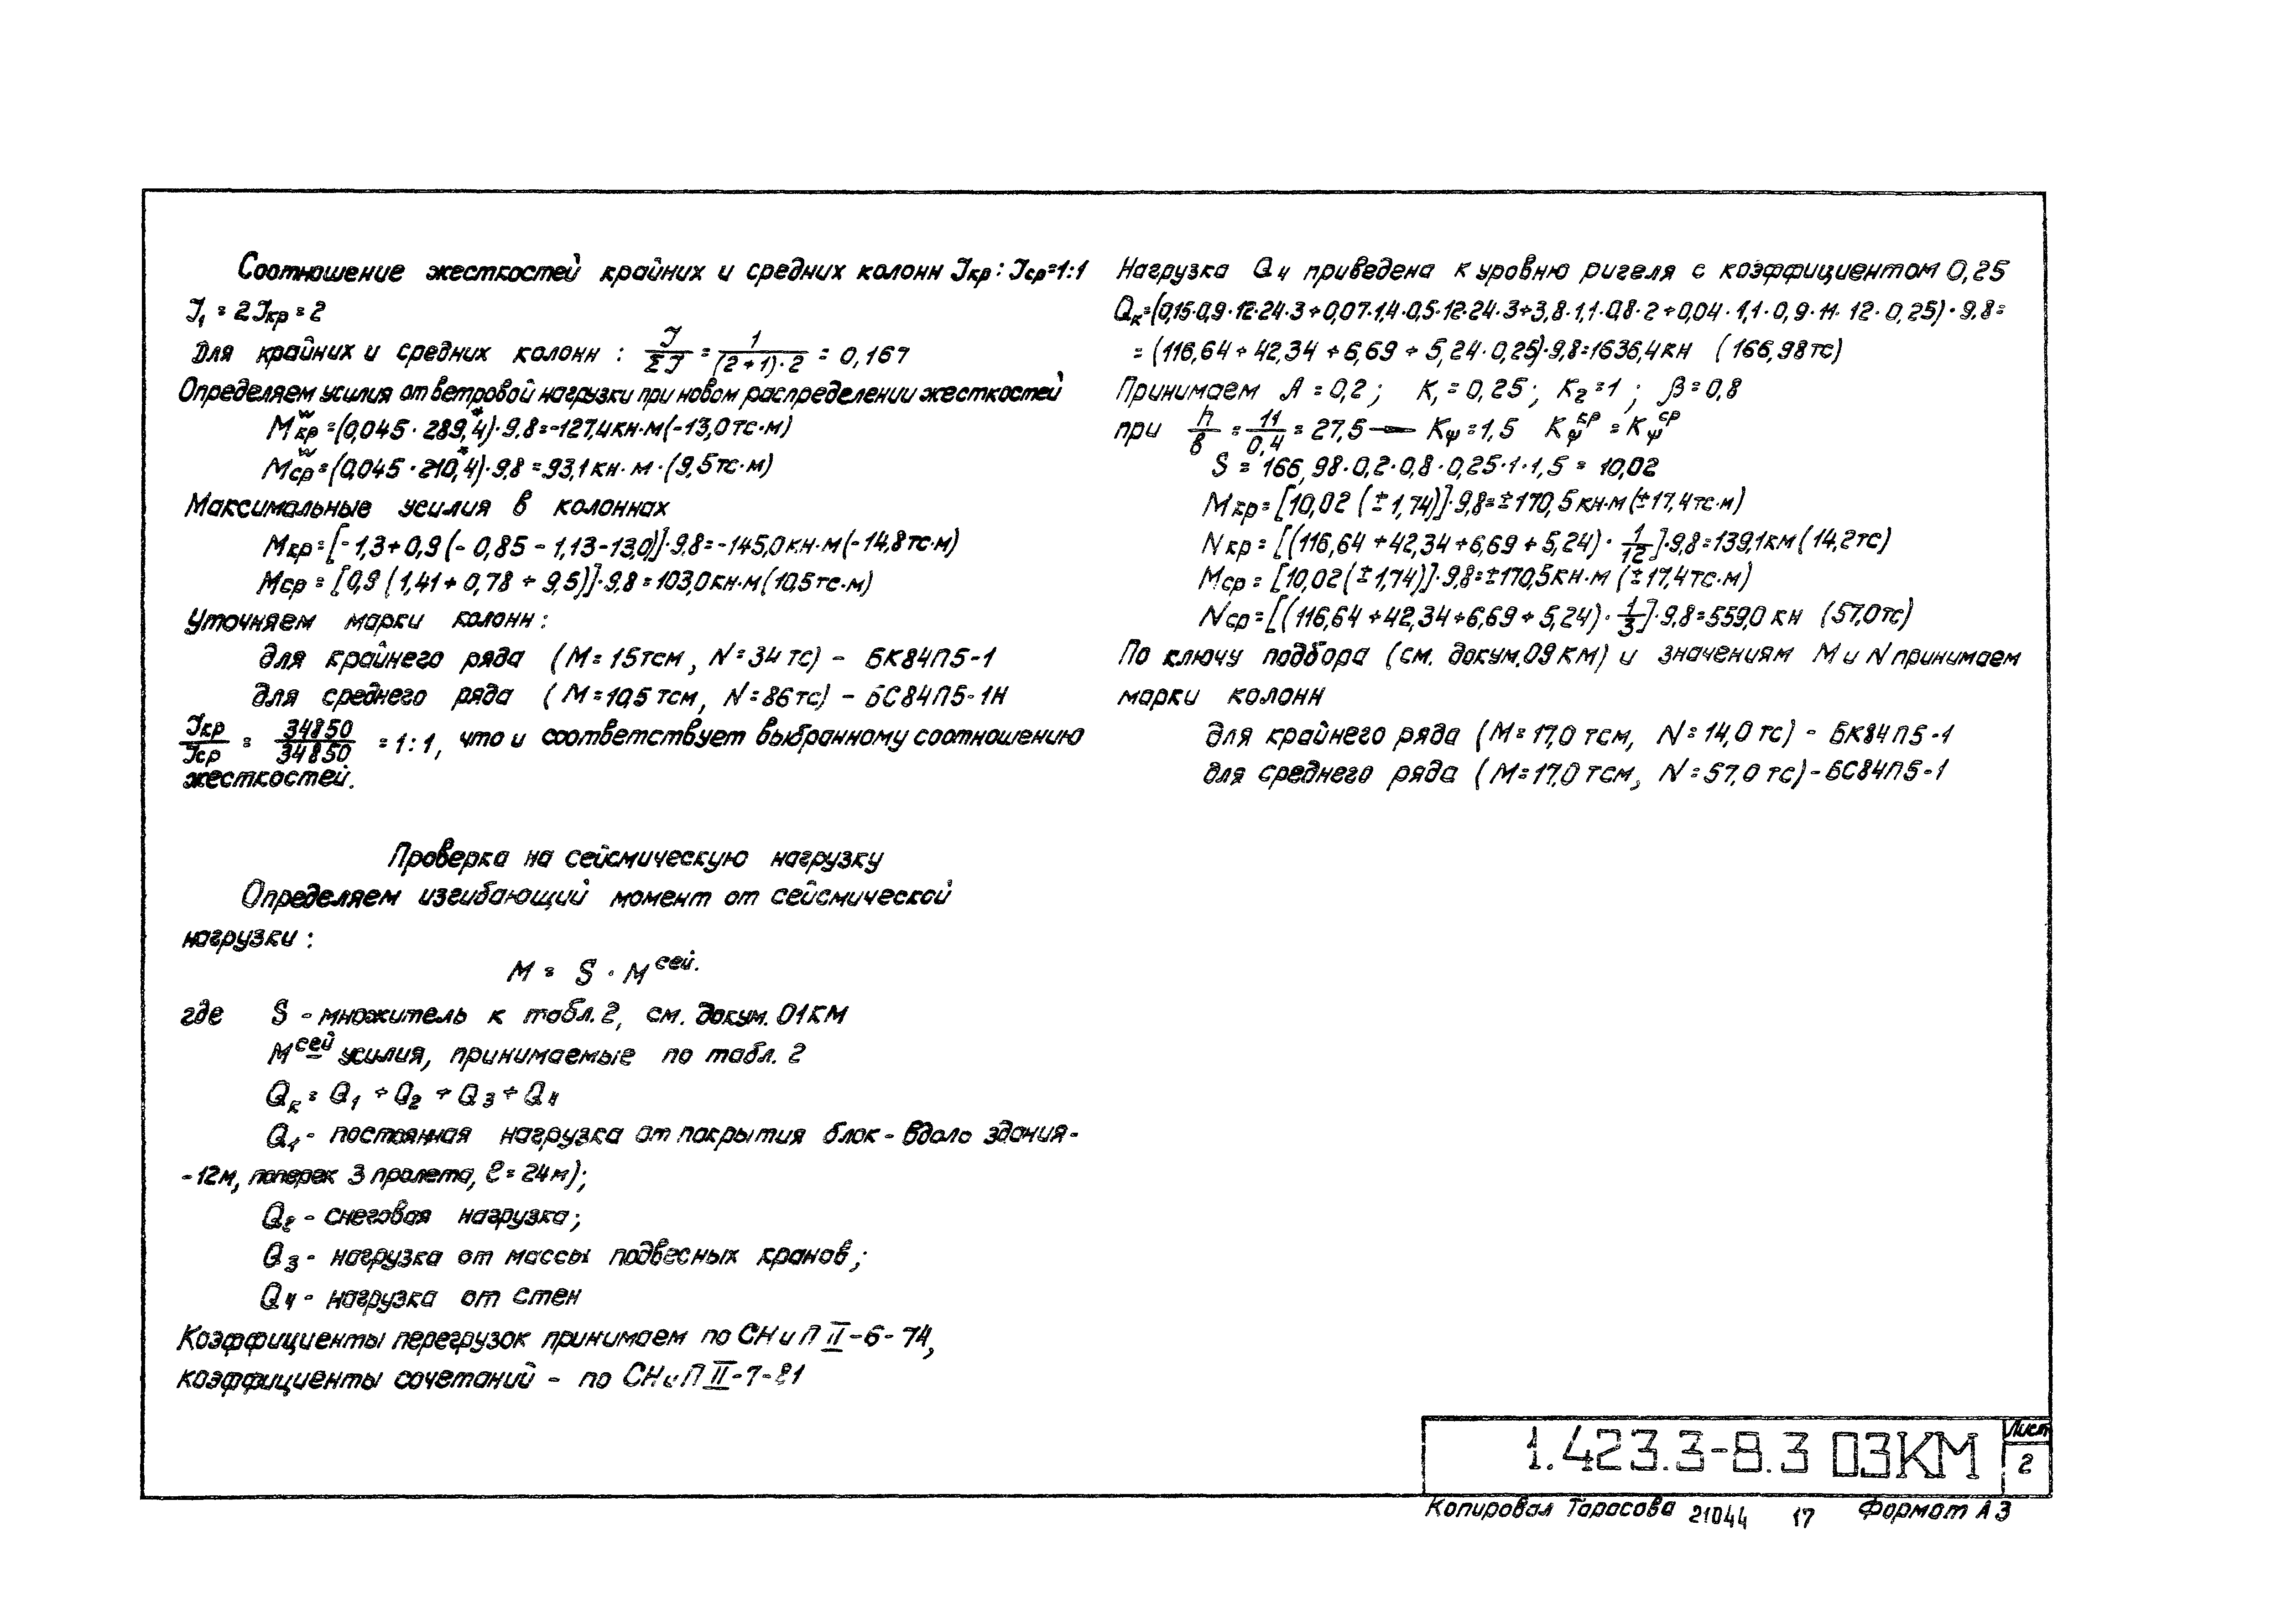 Соотношение жесткостей крайних и средних колонн Jкр : Jср=1:1
J₁ = 2Jкр = 2
Для крайних и средних колонн : J/ΣJ = 1/((2+1)·2) = 0,167
Определяем усилия от ветровой нагрузки при новом распределении жесткостей
Mкрʷ=(0,045 · 289,4*)·9,8=-127,4кн·м(-13,0тс·м)
Mсрʷ=(0,045 · 210,4*)·9,8 = 93,1кн·м·(9,5тс·м)
Максимальные усилия в колоннах
Mкр=[-1,3+0,9(-0,85-1,13-13,0)]·9,8=-145,0кн·м(-14,8тс·м)
Mср = [0,9 (1,41+0,78+9,5)]·9,8 = 103,0кн·м(10,5тс·м)
Уточняем марки колонн:
для крайнего ряда (М=15тсм, N=34тс) - БК84П5-1
для среднего ряда (М=10,5тсм, N=86тс) - БС84П5-1Н
Jкр/Jср = 34850/34850 = 1:1, что и соответствует выбранному соотношению
жесткостей.
Проверка на сейсмическую нагрузку
Определяем изгибающий момент от сейсмической
нагрузки:
М = S · М сей.
где S - множитель к табл. 2, см. докум. 01КМ
М сей - усилия, принимаемые по табл. 2
Qк = Q₁ + Q₂ + Q₃ + Q₄
Q₁ - постоянная нагрузка от покрытия блок - вдоль здания-
-12м, поперек 3 пролета, ℓ=24м);
Q₂ - снеговая нагрузка;
Q₃ - нагрузка от массы подвесных кранов;
Q₄ - нагрузка от стен
Коэффициенты перегрузок принимаем по СНиП II-6-74,
коэффициенты сочетаний - по СНиП II-7-81
Нагрузка Q₄ приведена к уровню ригеля с коэффициентом 0,25
Qк=(0,15·0,9·12·24·3+0,07·1,4·0,5·12·24·3+3,8·1,1·0,8·2+0,04·1,1·0,9·11·12·0,25)·9,8=
= (116,64 + 42,34 + 6,69 + 5,24·0,25)·9,8=1636,4кн (166,98тс)
Принимаем А = 0,2; К₁ = 0,25; К₂ = 1; β = 0,8
при h/в = 11/0,4 = 27,5 → Кψ = 1,5 Кψкр = Кψср
S = 166,98·0,2·0,8·0,25·1·1,5 = 10,02
Mкр=[10,02 (±1,74)]·9,8=±170,5кн·м(±17,4тс·м)
Nкр = [(116,64 +42,34+6,69+5,24) · 1/12]·9,8=139,1км(14,2тс)
Mср = [10,02(±1,74)]·9,8=±170,5кн·м (±17,4тс·м)
Nср=[(116,64+42,34+6,69+5,24) · 1/3]·9,8=559,0кн (57,0тс)
По ключу подбора (см. докум.09КМ) и значениям М и N принимаем
марки колонн
для крайнего ряда (М=17,0тсм, N=14,0тс) - БК84П5-1
для среднего ряда (М=17,0тсм, N=57,0тс) - БС84П5-1
1.423.3-8.3 03КМ
Лист
2
Копировал Тарасова 21044 17 Формат А3